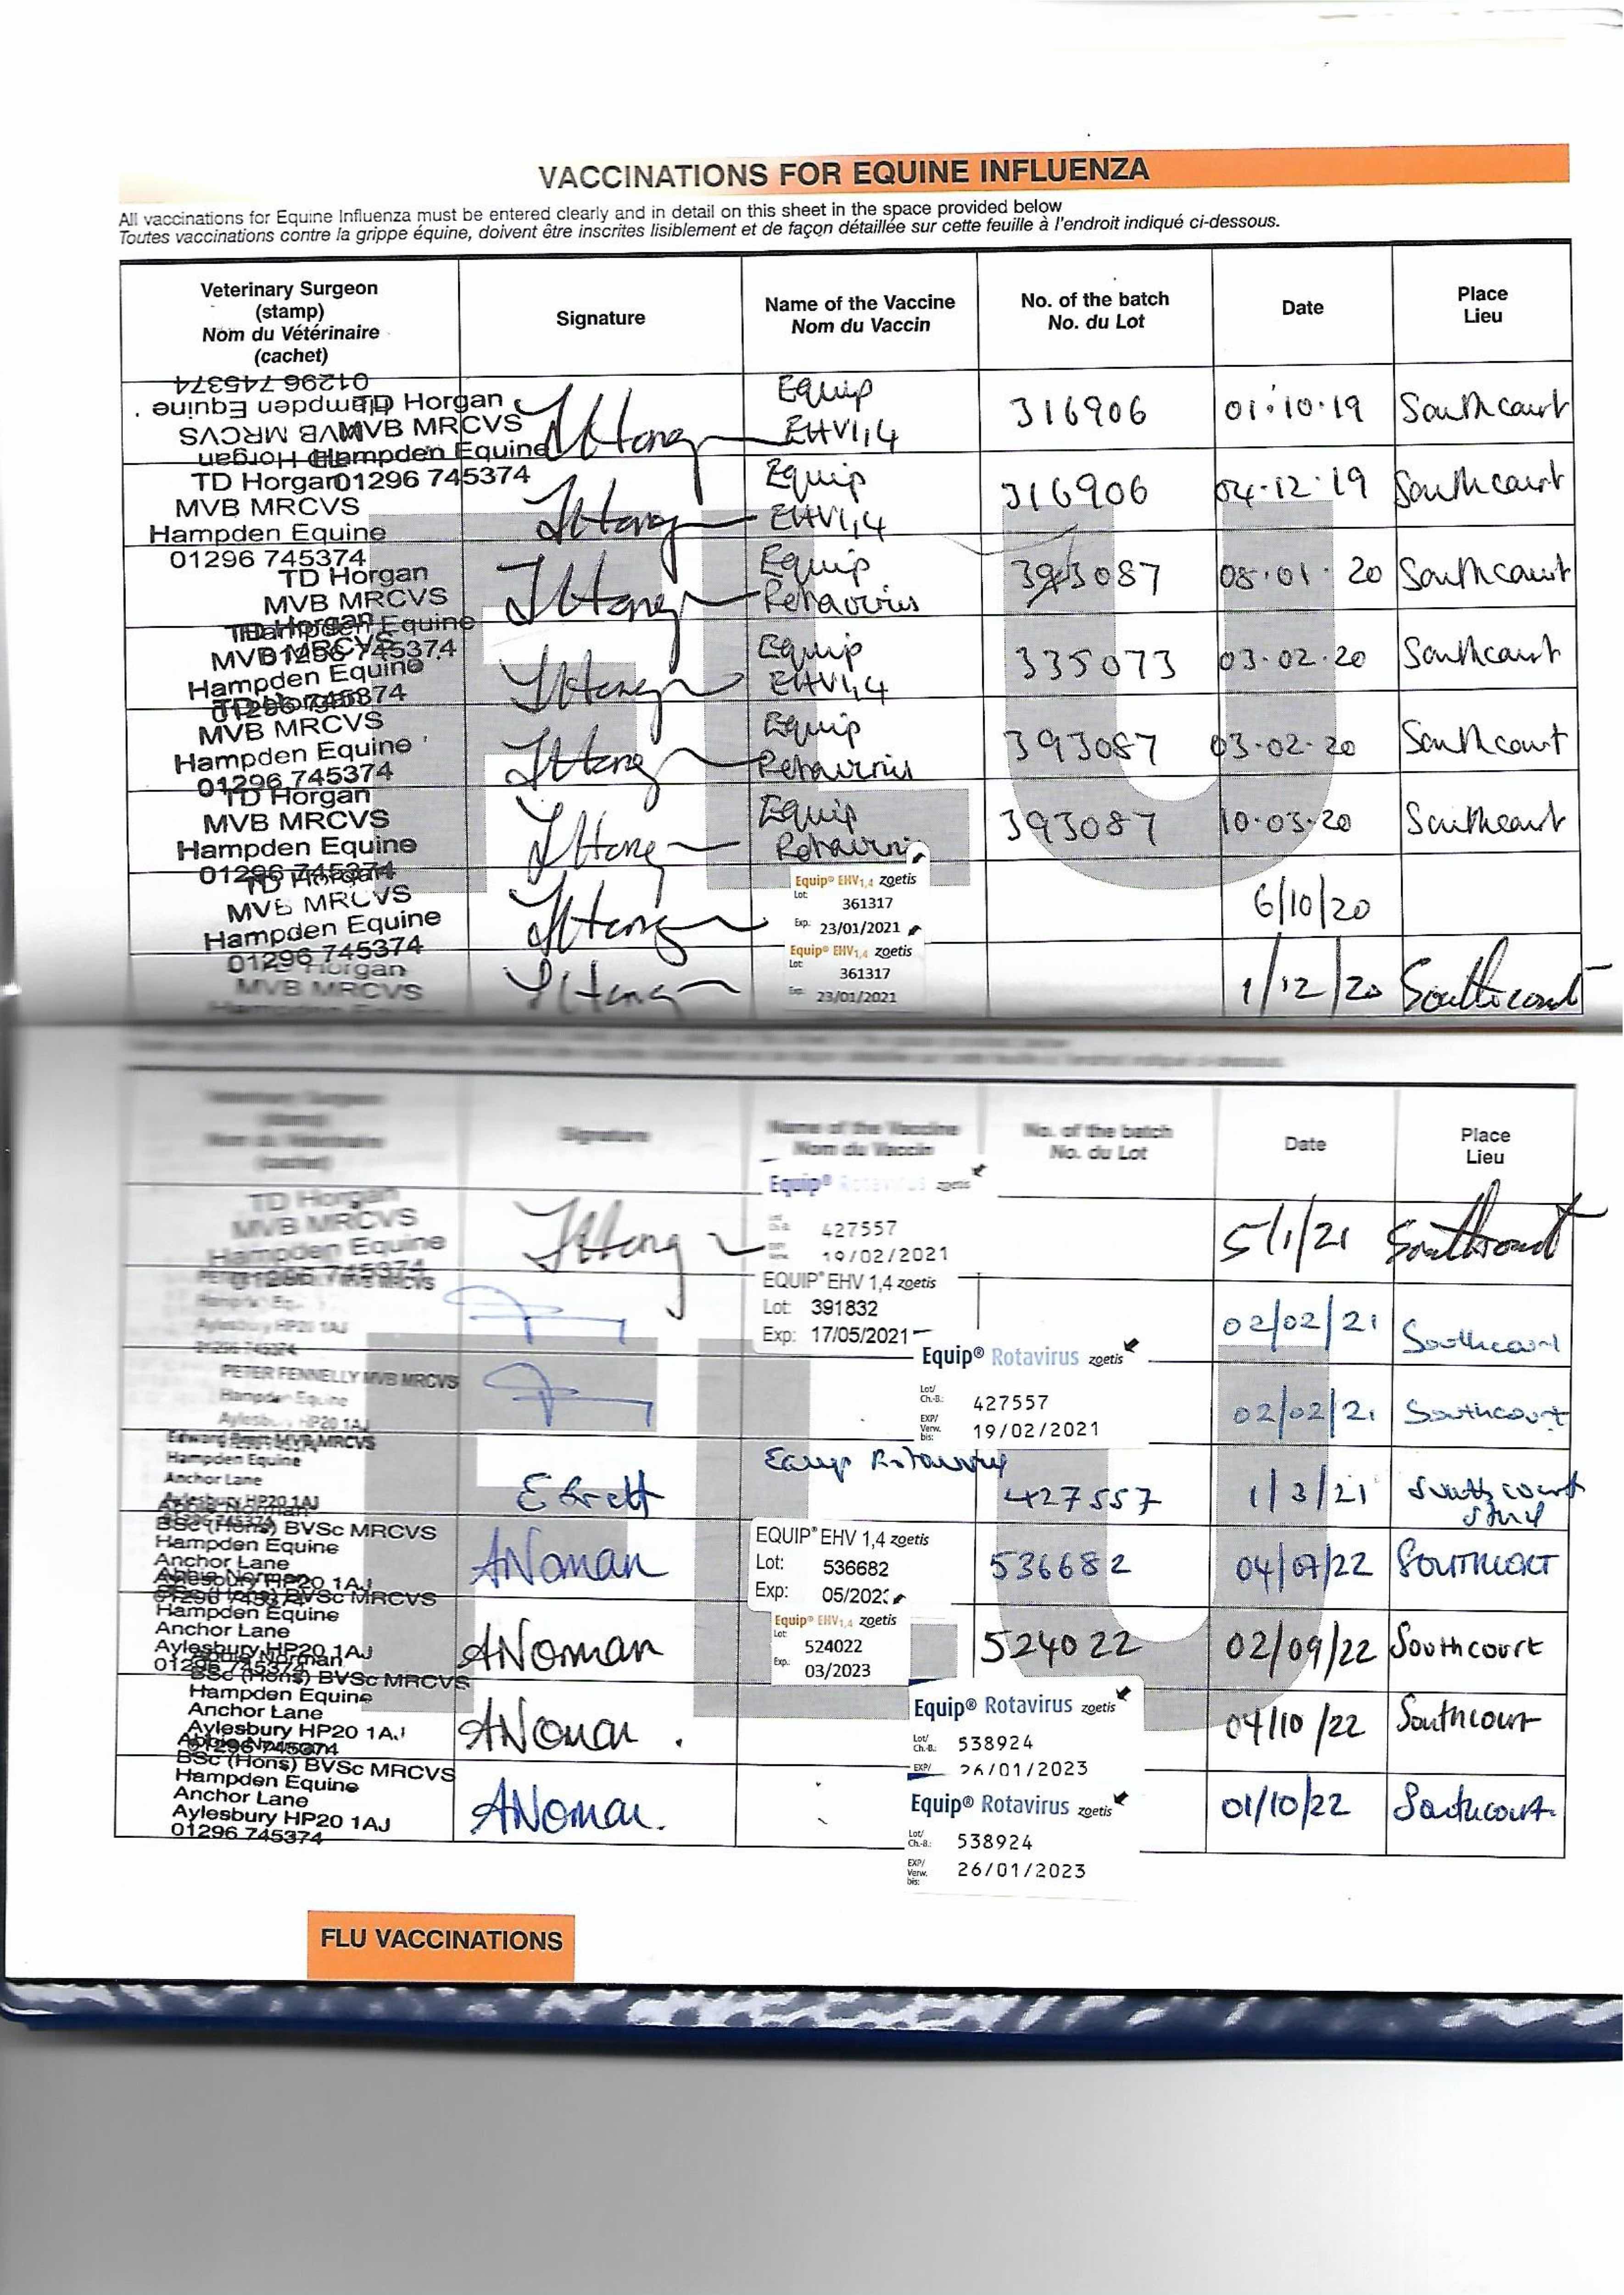 VACCINATIONS FOR EQUINE INFLUENZA
All vaccinations for Equine Influenza must be entered clearly and in detail on this sheet in the space provided below
Toutes vaccinations contre la grippe équine, doivent être inscrites lisiblement et de façon détaillée sur cette feuille à l'endroit indiqué ci-dessous.
Veterinary Surgeon
(stamp)
Nom du Vétérinaire
(cachet)
Signature
Name of the Vaccine
Nom du Vaccin
No. of the batch
No. du Lot
Date
Place
Lieu
01296 745374
Hampden Equine
MVB MRCVS
TD Horgan
MVB MRCVS
Hampden Equine
01296 745374
Equip
EHV1,4
316906
01.10.19
Southcourt
TD Horgan
MVB MRCVS
Hampden Equine
01296 745374
Equip
EHV1,4
316906
04.12.19
Southcourt
TD Horgan
MVB MRCVS
Hampden Equine
01296 745374
Equip
Rotavirus
393087
08.01.20
Southcourt
TD Horgan
MVB MRCVS
Hampden Equine
01296 745374
Equip
EHV1,4
335073
03.02.20
Southcourt
TD Horgan
MVB MRCVS
Hampden Equine
01296 745374
Equip
Rotavirus
393087
03.02.20
Southcourt
TD Horgan
MVB MRCVS
Hampden Equine
01296 745374
Equip
Rotavirus
393087
10.03.20
Southcourt
TD Horgan
MVB MRCVS
Hampden Equine
01296 745374
Equip® EHV1,4 zoetis
Lot: 361317
Exp. 23/01/2021
6/10/20
Horgan
MVB MRCVS
Equip® EHV1,4 zoetis
Lot: 361317
Exp. 23/01/2021
1/12/20
Southcourt
FLU
Veterinary Surgeon
(stamp)
Nom du Vétérinaire
(cachet)
Signature
Name of the Vaccine
Nom du Vaccin
No. of the batch
No. du Lot
Date
Place
Lieu
TD Horgan
MVB MRCVS
Hampden Equine
01296 745374
Equip® Rotavirus zoetis
427557
19/02/2021
5/1/21
Southcourt
MRCVS
Aylesbury HP20 1AJ
01296 745374
EQUIP® EHV 1,4 zoetis
Lot: 391832
Exp: 17/05/2021
02/02/21
Southcourt
PETER FENNELLY MVB MRCVS
Hampden Equine
Aylesbury HP20 1AJ
Equip® Rotavirus zoetis
Lot/
Ch.-B.: 427557
EXP/
Verw.
bis: 19/02/2021
02/02/21
Southcourt
Edward Brett MVB MRCVS
Hampden Equine
Anchor Lane
Aylesbury HP20 1AJ
01296 745374
E Brett
Equip Rotavirus
427557
1/3/21
Southcourt
Stud
Abbie Norman
BSc (Hons) BVSc MRCVS
Hampden Equine
Anchor Lane
Aylesbury HP20 1AJ
01296 745374
ANorman
EQUIP® EHV 1,4 zoetis
Lot: 536682
Exp: 05/202
536682
04/07/22
SOUTHCORT
Abbie Norman
BSc (Hons) BVSc MRCVS
Hampden Equine
Anchor Lane
Aylesbury HP20 1AJ
01296 745374
ANorman
Equip® EHV1,4 zoetis
Lot: 524022
Exp.: 03/2023
524022
02/09/22
Southcourt
Abbie Norman
BSc (Hons) BVSc MRCVS
Hampden Equine
Anchor Lane
Aylesbury HP20 1AJ
01296 745374
ANorman.
Equip® Rotavirus zoetis
Lot/
Ch.-B.: 538924
EXP/ 26/01/2023
04/10/22
Southcourt
Abbie Norman
BSc (Hons) BVSc MRCVS
Hampden Equine
Anchor Lane
Aylesbury HP20 1AJ
01296 745374
ANorman.
Equip® Rotavirus zoetis
Lot/
Ch.-B.: 538924
EXP/
Verw.
bis: 26/01/2023
01/10/22
Southcourt.
FLU
FLU VACCINATIONS